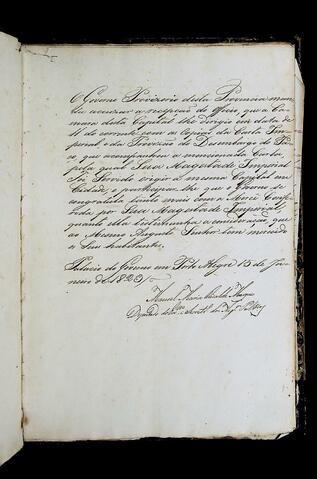 O Governo Provizorio desta Provincia man
da accuzar a recepção do Officio, que a Ca
mara desta Capital lhe dirigio em data de
11 do corrente com as Copias da Carta Im
perial e da Provizão do Dezembargo do Pa
ço que acompanhou a mencionada Carta
pela qual Sua Magestade Imperial
Foi Servido erigir a mesma Capital em
Cidade, e participar-lhe que o Governo se
congratula tanto mais com a Mercê Confe
rida por Sua Magestade Imperial,
quanto ella testemunha a consideração que
ao Mesmo Augusto Senhor tem merecido
os seus habitantes.
Palacio do Governo em Porto Alegre 15 de Ja
neiro de 1823
Manoel Maria
Deputado